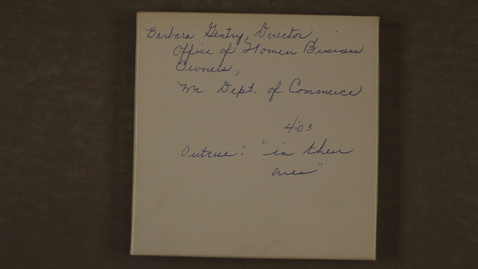 Barbara Gentry, Director
Office of Women Business
Owners,
Dept. of Commerce
4:03
Outcue: "in their
area"